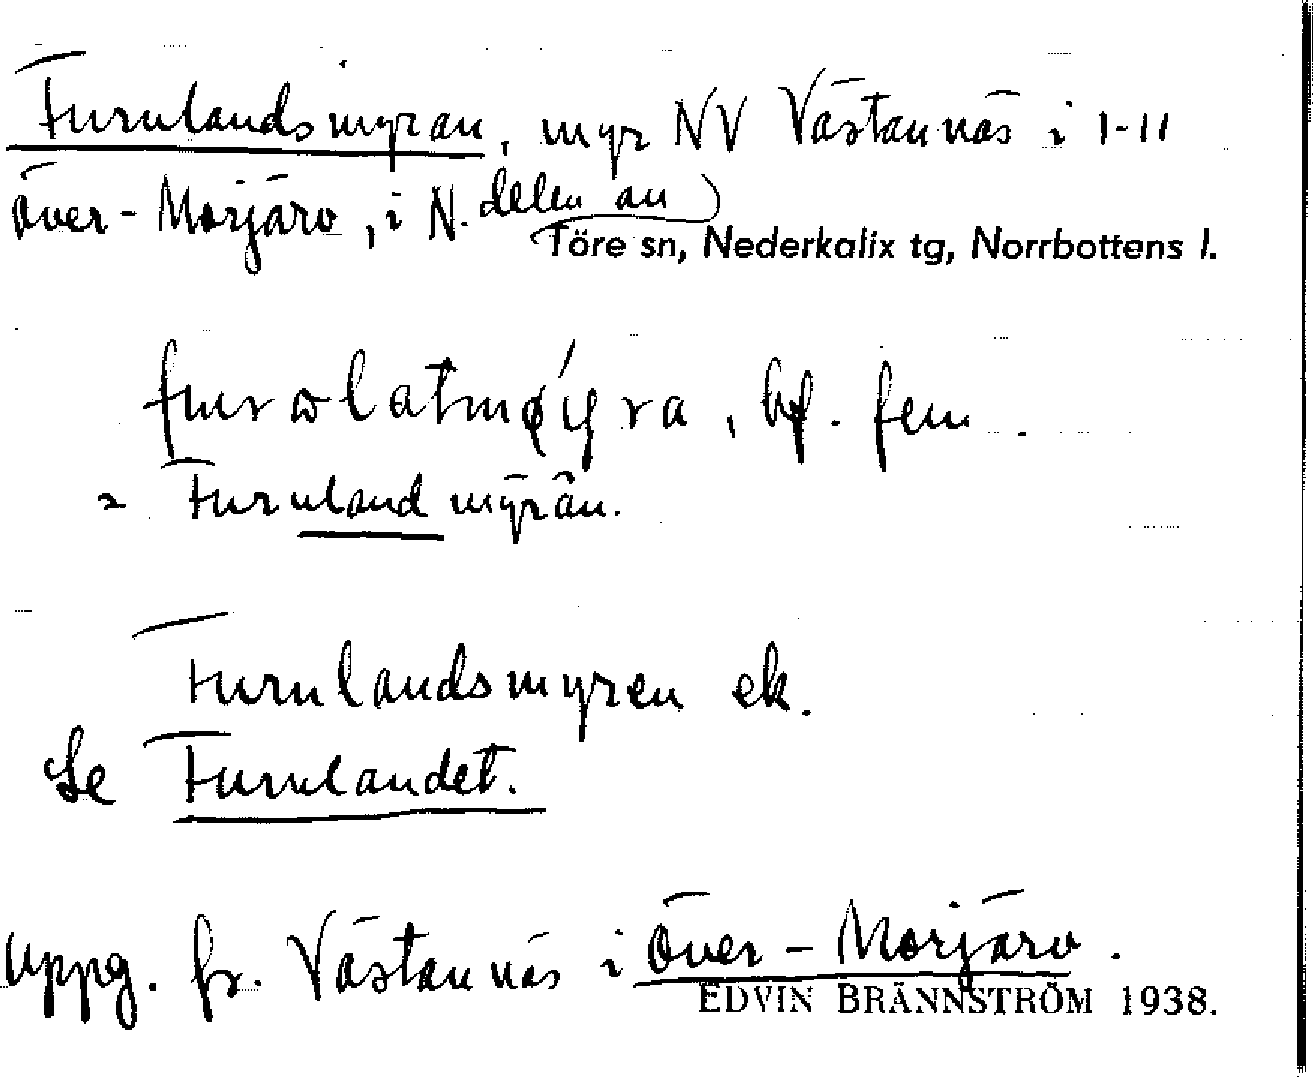 Furulandsmyran, myr NV Västannäs i 1-11
Över-Morjärv, i N. delen av
Töre sn, Nederkalix tg, Norrbottens l.
bf. fem.
= Furulandmyrän.
Furulandsmyren ek.
Se Furulandet.
Uppg. fr. Västannäs i Över-Morjärv.
EDVIN BRÄNNSTRÖM 1938.